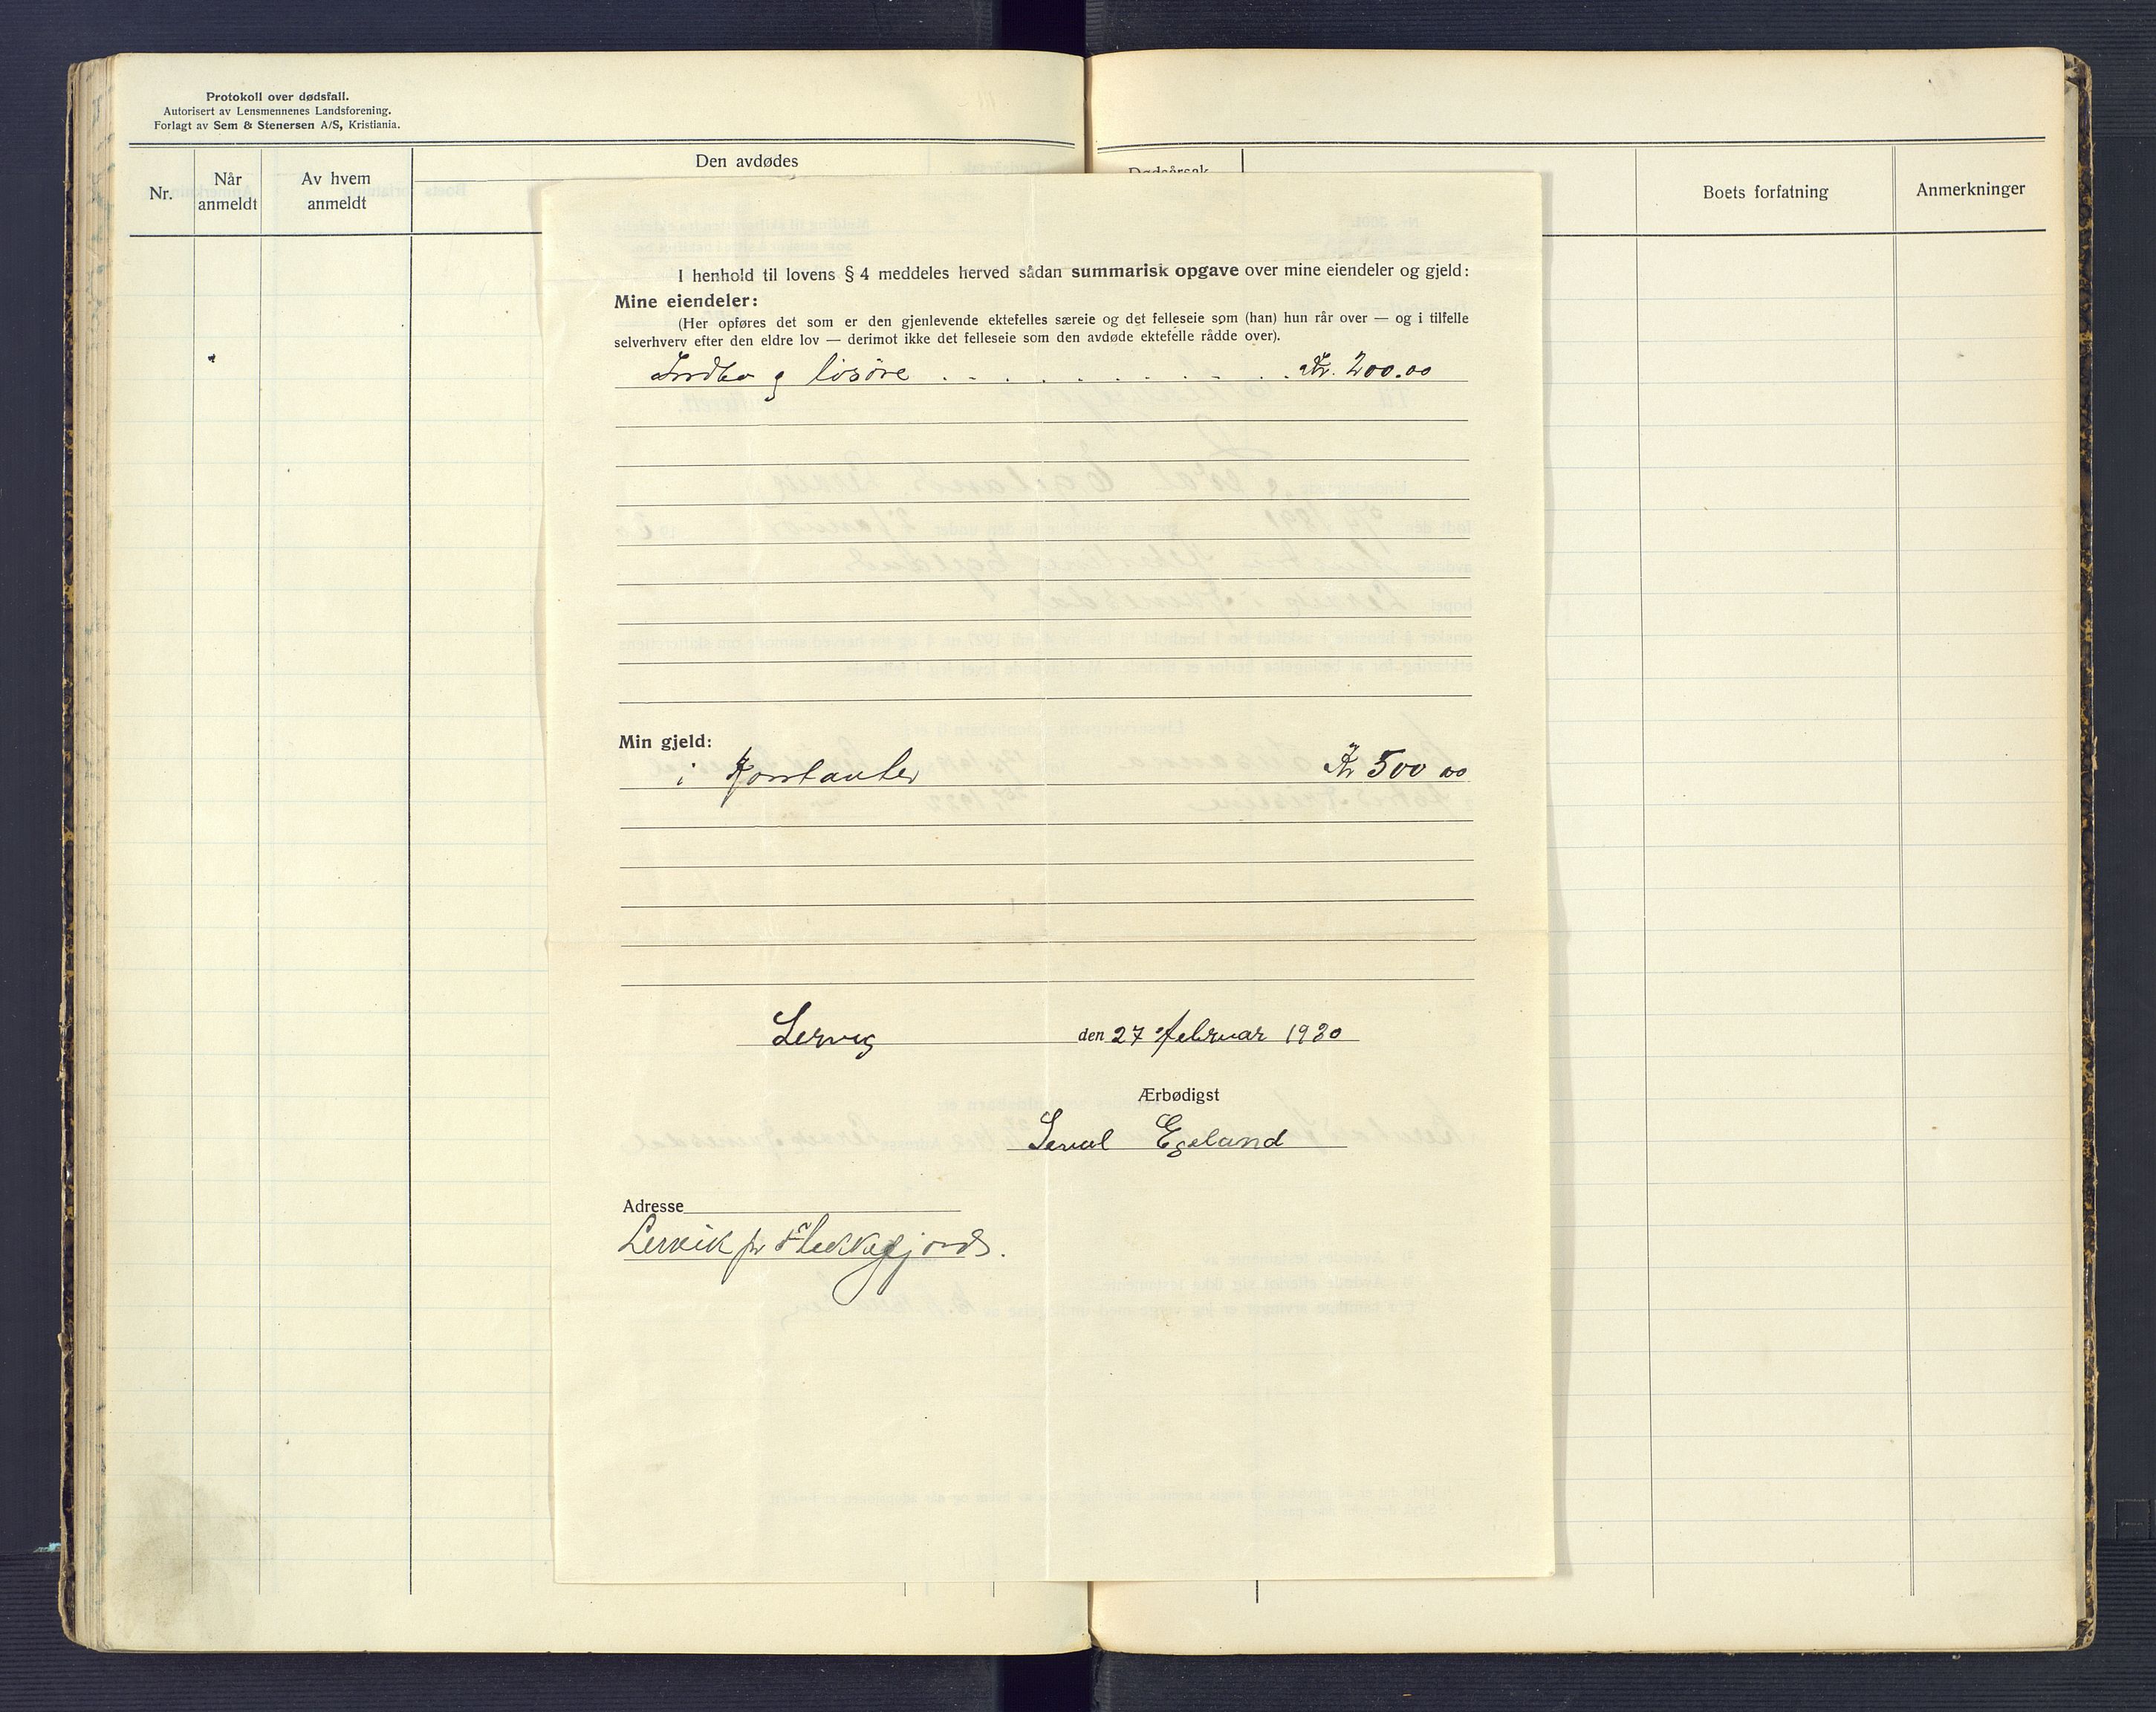 Protokoll over dødsfall.
Autorisert av Lensmennenes Landsforening.
Forlagt av Sem & Stenersen A/S, Kristiania.
Nr.
Når anmeldt
Av hvem anmeldt
Den avdødes
Dødsårsak
Boets forfatning
Anmerkninger
I henhold til lovens § 4 meddeles herved sådan summarisk opgave over mine eiendeler og gjeld:
Mine eiendeler:
(Her opføres det som er den gjenlevende ektefelles særeie og det felleseie som (han) hun rår over — og i tilfelle
selverhverv efter den eldre lov — derimot ikke det felleseie som den avdøde ektefelle rådde over).
Indbo og løsøre . . . . . . . . . . Kr. 200.00
Min gjeld:
i Kontanter Kr 500 00
Lervig den 27 februar 1930
Ærbødigst
Seval Egeland
Adresse
Lervik pr Flekkefjord.